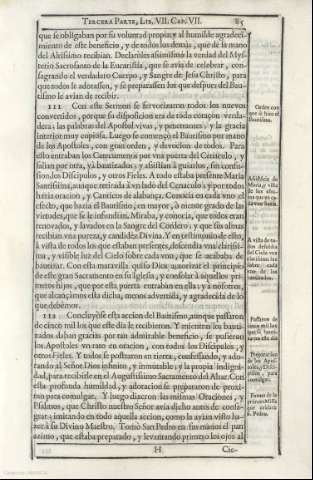 TERCERA PARTE, LIB. VII. CAP. VII. 85
que se obligaban por su voluntad propia; y al humilde agradeci-
miento de este beneficio, y de todos los demás, que de la mano
del Altissimo recibian. Declaròles asimismo la verdad del Myste-
rio Sacrosanto de la Eucaristia, que se avia de celebrar, con-
sagrando el verdadero Cuerpo, y Sangre de Jesu Christo, para
que todos le adorassen, y se preparassen los que despues del Bau-
tismo le avian de recibir.
111 Con este Sermon se fervorizaron todos los nuevos
convertidos, porque su disposicion era de todo coraçon verda-
dera; las palabras del Apostol vivas, y penetrantes; y la gracia
interior muy copiosa. Luego se començò el Bautismo por mano
de los Apostoles, con gran orden, y devocion de todos. Para
esto entraban los Catecumenos por vna puerta del Cenaculo, y
salian por otra, yà bautizados; y assistian à guiarlos, sin confu-
sion, los Discipulos, y otros Fieles. A todo estaba presente Maria
Santissima, aunque retirada à vn lado del Cenaculo; y por todos
hazia oracion, y Canticos de alabança. Conocia en cada vno el
efecto, que hazia el Bautismo, en mayor, ò menor grado de las
virtudes, que se le infundian. Miraba, y conocia, que todos eran
renovados, y lavados en la Sangre del Cordero; y que sus almas
recibian vna pureza, y candidèz Divina. Y en testimonio de esto,
à vista de todos los que estaban presentes, descendia vna clarissi-
ma, y visible luz del Cielo sobre cada vno, que se acababa de
bautizar. Con esta maravilla quiso Dios autorizar el principio
de este gran Sacramento en su Iglesia, y consolar à aquellos pri-
meros hijos, que por esta puerta entraban en ella; y à nosotros,
que alcançamos esta dicha, menos advertida, y agradecida de lo
que debemos.
112 Concluyòse esta accion del Bautismo, aunque passaron
de cinco mil los que este dia le recibieron. Y mientras los bauti-
zados daban gracias por tan admirable beneficio, se pusieron
los Apostoles vn rato en oracion, con todos los Discipulos, y
otros Fieles. Y todos se postraron en tierra, confessando, y ado-
rando al Señor, Dios infinito, y inmutable; y la propia indigni-
dad, para recibirle en el Augustissimo Sacramento del Altar. Con
esta profunda humildad, y adoracion se prepararon de proxi-
mo para comulgar. Y luego dixeron las mismas Oraciones, y
Psalmos, que Christo nuestro Señor avia dicho antes de consa-
grar; imitando en todo aquella accion, como la avian visto ha-
zer à su Divino Maestro. Tomò San Pedro en sus manos el pan
azimo, que estaba preparado, y levantando primero los ojos al
H Cie-
Orden con
que se hizo el
Bautismo.
Assistencia de
Maria, y vista
de los efec-
A vista de to-
dos descendia
del Cielo vna
luz
sobre cada
vno de los
Passaron de
cinco mil los
que se bauti-
zaron este dia
Preparacion
de los Aposto-
comulgar.
primera Missa
que celebrò
S. Pedro.